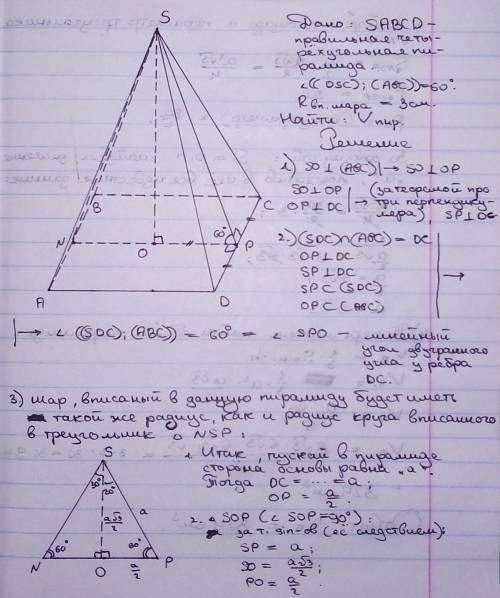 Дано: SABCD –
правильная четы-
рёхугольная пи-
рамида
∠((DSC); (ABC))=60°.
R вп. шара = 3см.
Найти: V пир.
Решение
1) SO⊥(ABC) | → SO⊥OP
SO⊥OP
OP⊥DC | → (за теоремой про три перпендикуляра), SP⊥DC
2.) (SDC)∩(ABC) = DC
OP⊥DC
SP⊥DC
SP⊂(SDC)
OP⊂(ABC)
| →
S
B
C
N
O
60°
P
A
D
| → ∠((SDC); (ABC)) = 60° = ∠SPO – линейный
угол двугранного
угла у ребра
DC.
3) шар, вписаный в данную пирамиду будет иметь
такой же радиус, как и радиус круга вписанного
в треугольник △ NSP:
S
30° 30°
a√3/2
a
60°
60°
N
O
a/2
P
1. Итак, пускай в пирамиде
сторона основы равна "a".
Тогда DC = ... = a;
OP = a/2.
2. △SOP (∠SOP=90°):
за т. sin-ов (её следствием):
SP = a;
SO = a√3/2;
PO = a/2.